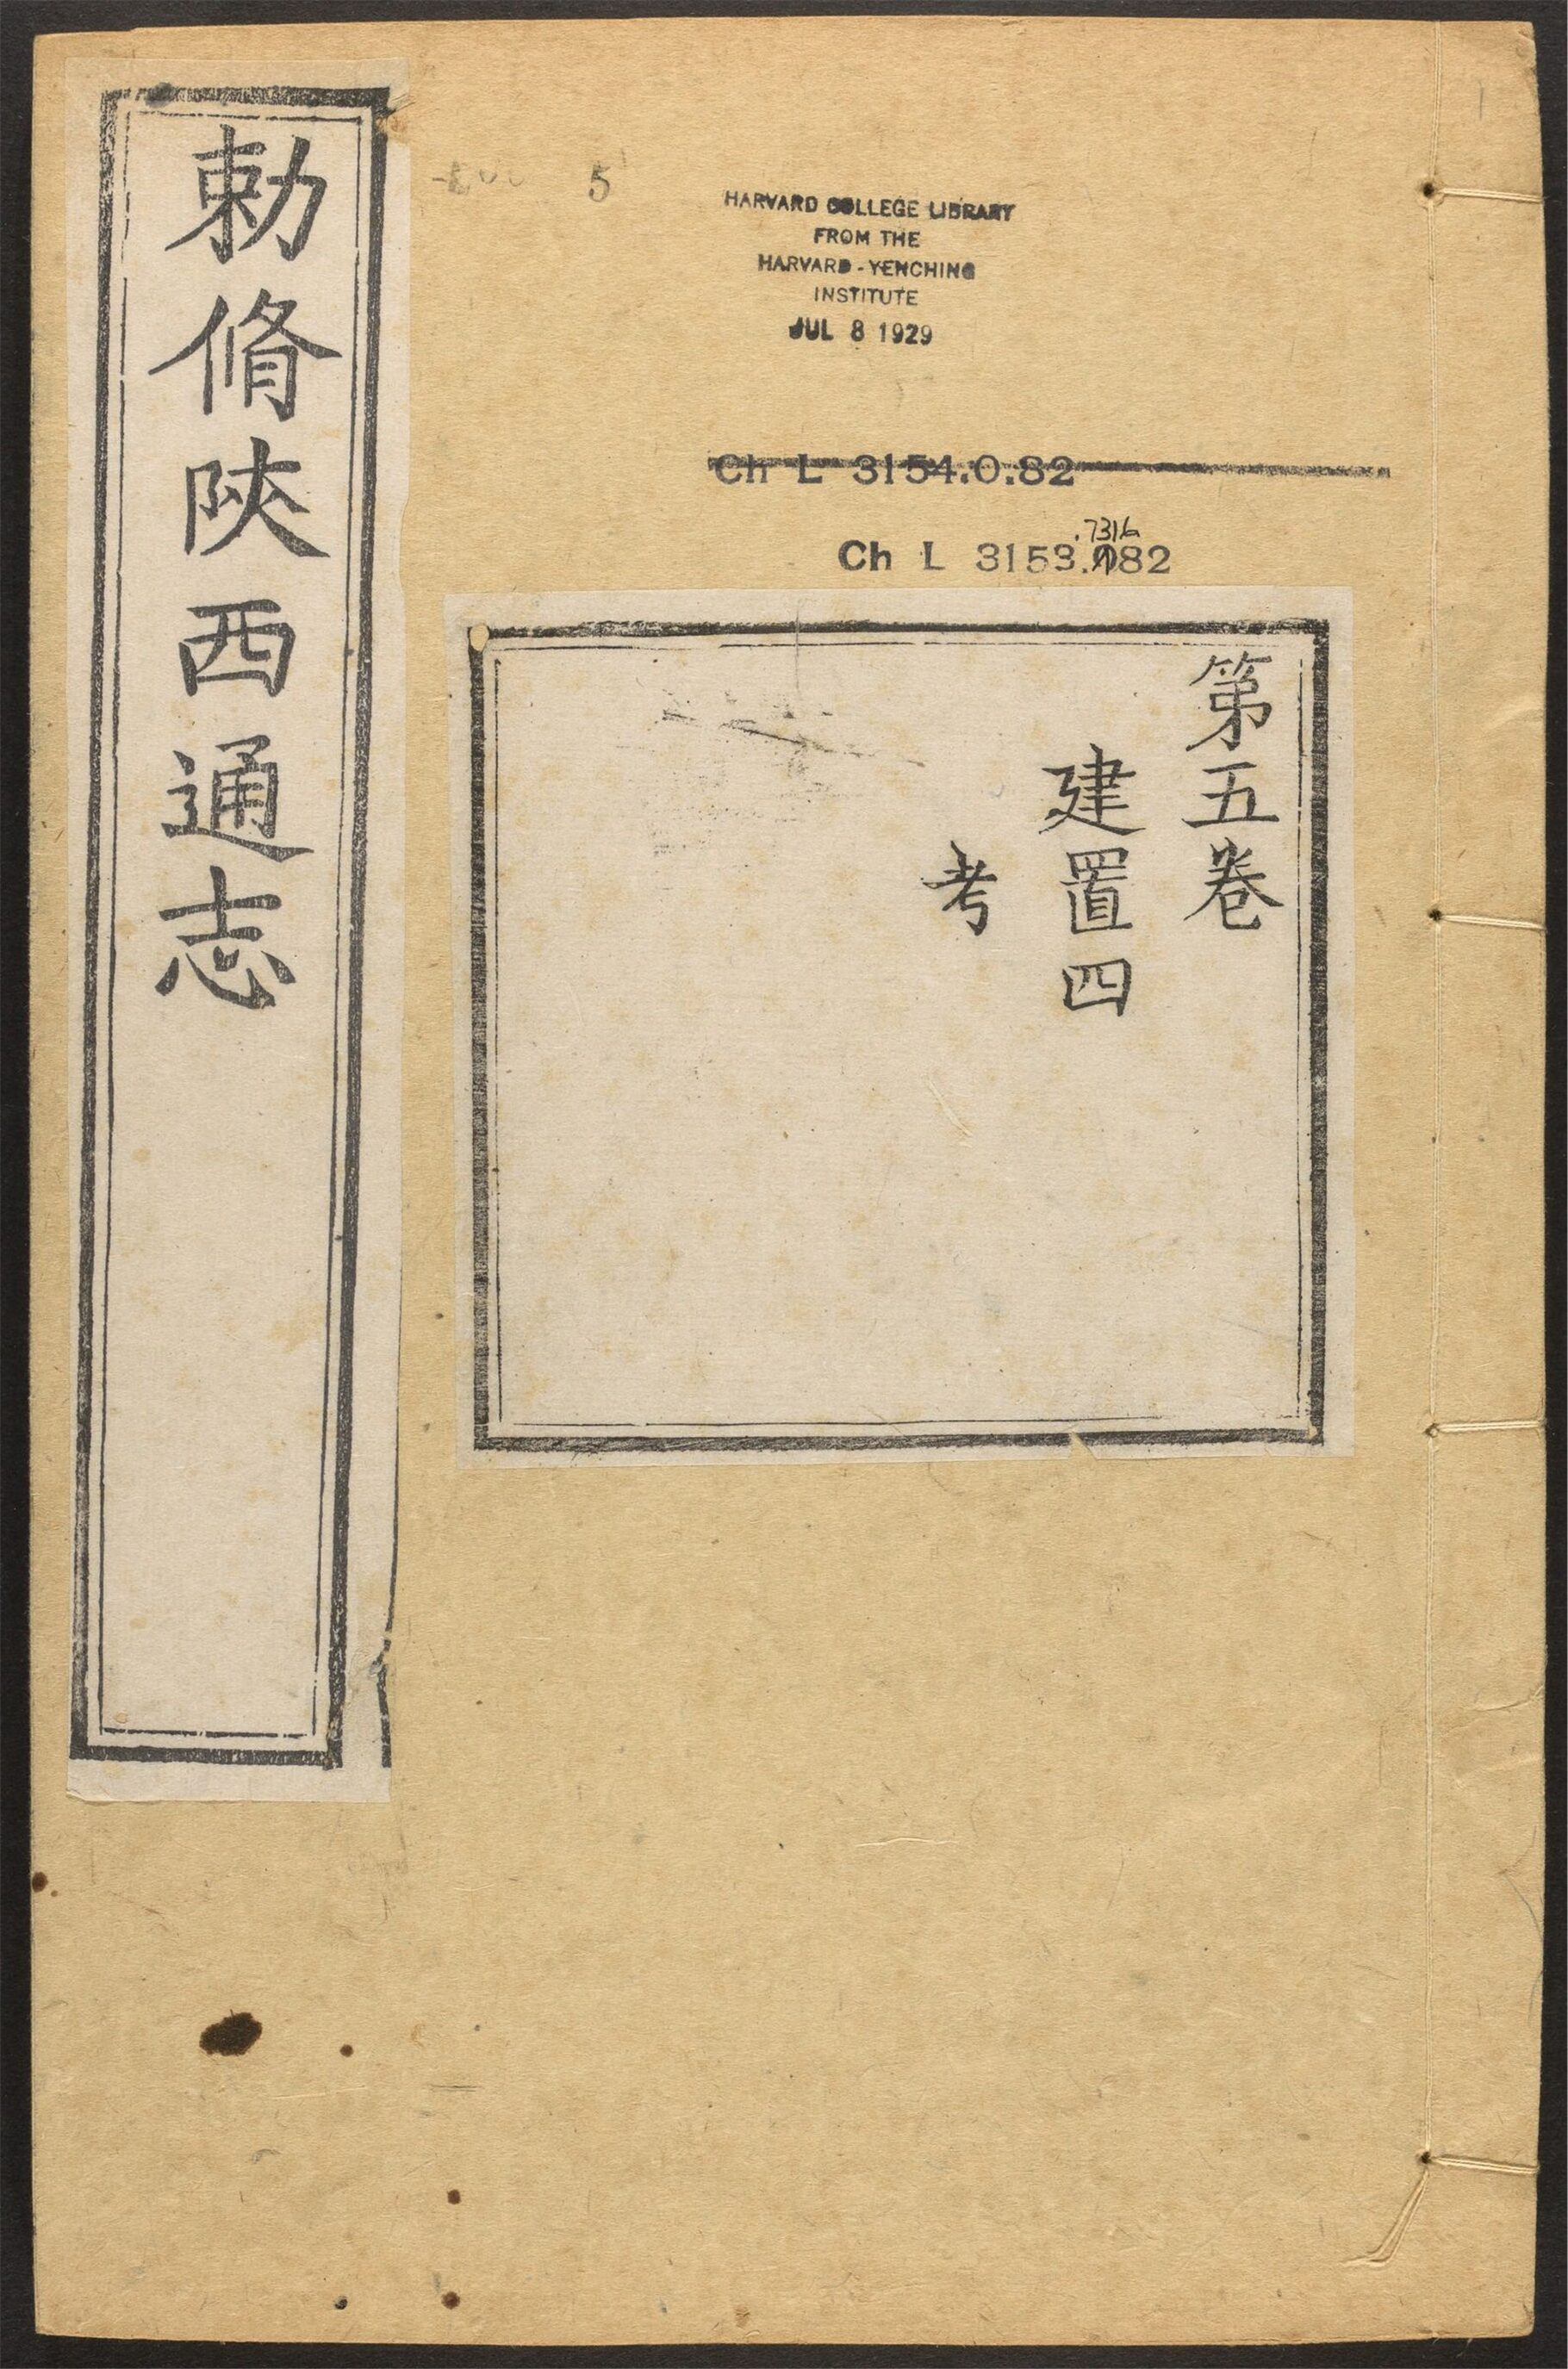 勅脩陝西通志
5
HARVARD COLLEGE LIBRARY
FROM THE
HARVARD-YENCHING
INSTITUTE
JUL 8 1929
Ch L 3154.0.82
.7316
Ch L 3153.082
第五卷
建置四
考